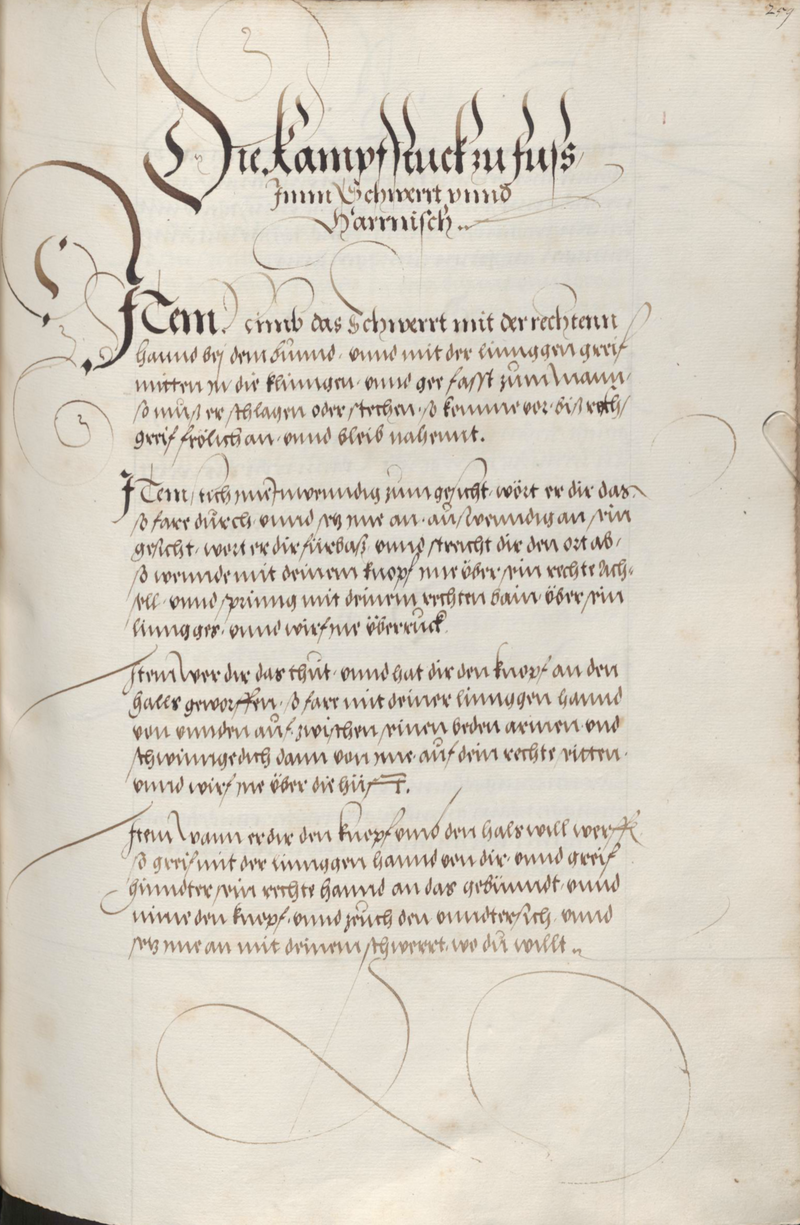 259
Die Kampfstuck zu fuss
Imm Schwerrt vnnd
Harrnisch..
ITem. nimb das Schwerrt mit der rechtenn
hannd bej dem bunnd, vnnd mit der linnggen greif
mitten in die klinngen, vnnd gee fasst zum Mann,
so muß er schlagen oder stechen, so komme vor,
greif frölich an, vnnd bleib nahennt.
ITem, stich inne Innwenndig zum gesicht, wört er dir das
so fare dürch, vnnd setz ime an, außwenndig an sein
gesicht, wert er dir fürbaß, vnnd streicht dir den ort ab,
so wennde mit deinem knopf ime über sein rechte Ach=
sell, vnnd sprinng mit deinem rechten bain, über sein
linngges, vnnd wirf ine überruck.
Item Wer dir das thüt, vnnd hat dir den knopf an den
Halls geworffen, so fare mit deiner linnggen hannd
von vnnden auf, zwischen seinen beden armen, vnd
schwinnge dich dann von ime, auf dein rechte sitten,
vnnd wirf ine über die hüfft.
Item Wann er dir den knopf vmb den hals will werffen
so greif mit der linnggen hannd von dir, vnnd greif
hinndter sein rechte hannd an das gebünndt, vnnd
nime den knopf, vnnd zeuch den vnndtersich, vnnd
setz ime an mit deinem schwerrt, wo dü willt..